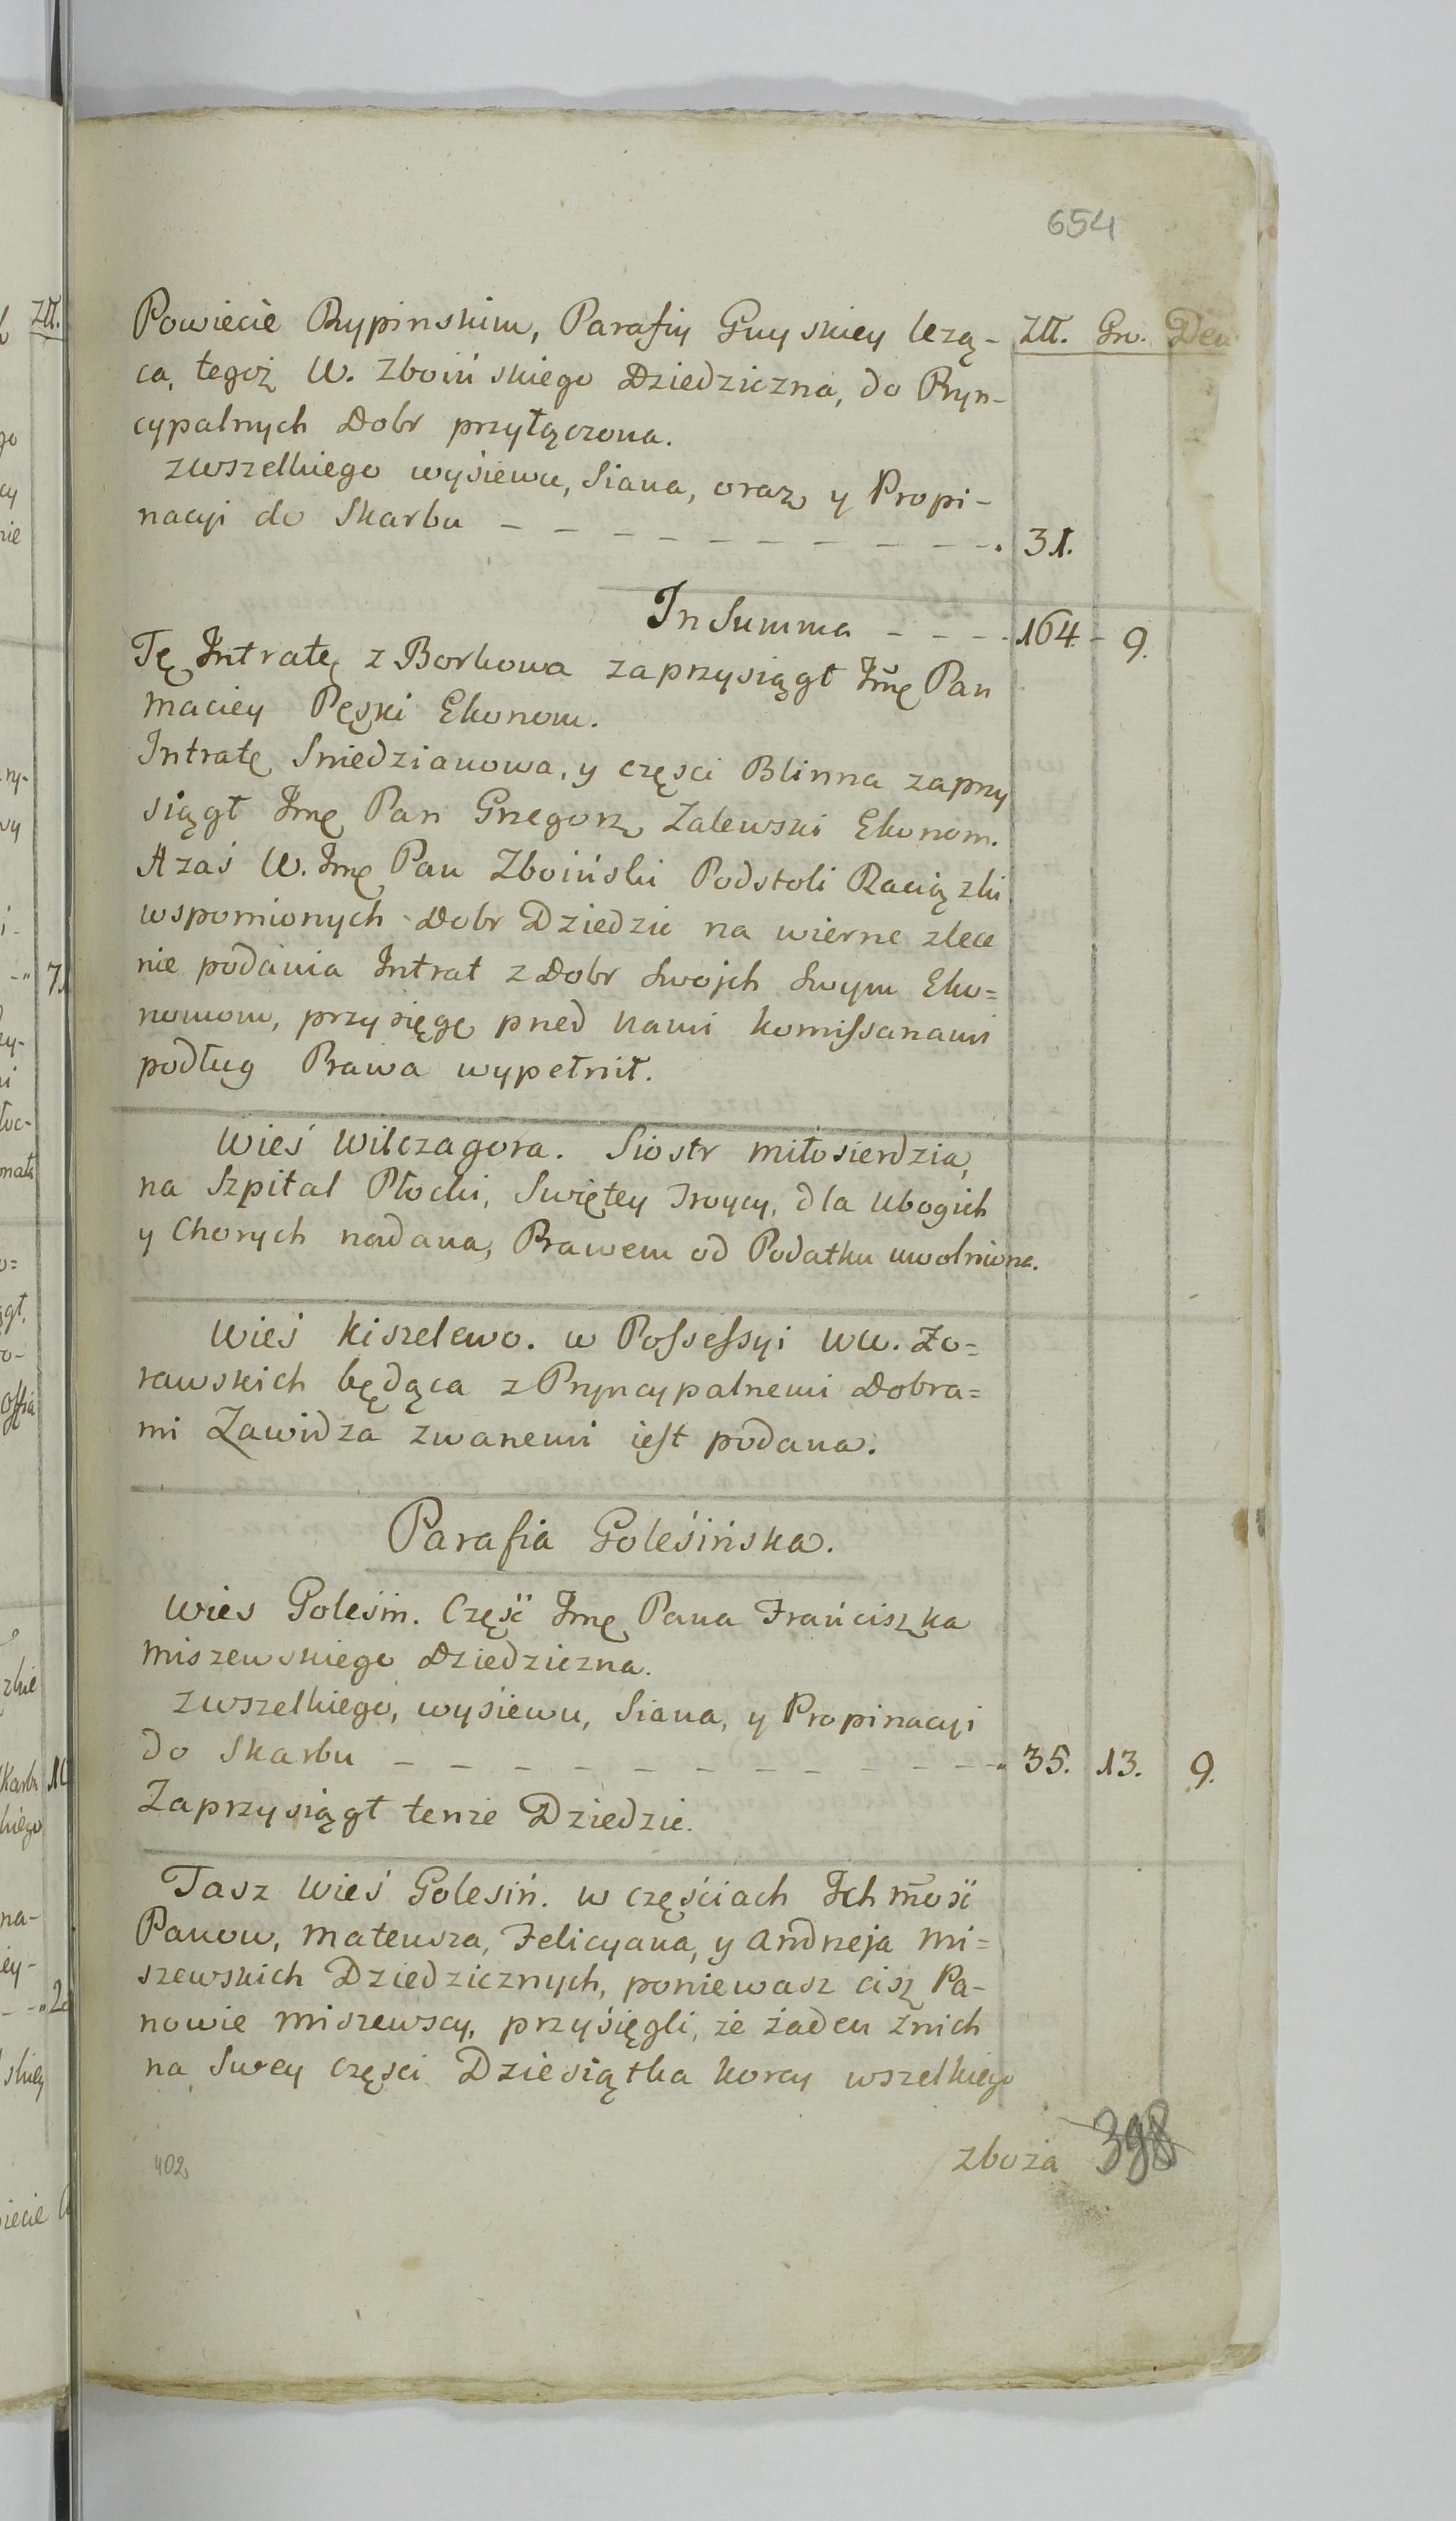 654
Powiecie Rypinskim, Parafiy Guyskiey lezą- Złł. Gr. Den
ca, tegoż W. Zboińskiego Dziedziczna, do Pryn-
cypalnych Dobr przyłączona.
zwszelkiego wysiewu, Siana, oraz y Propi-
nacyi do Skarbu - - - - - - - - - - 31.
In Summa - - - - 164 - 9.
Tę Intratę z Borkowa zaprzysiągł Jmę Pan
Maciey Pęski Ekonom.
Intratę Sniedzianowa, y części Blinna zaprzy
siągł Jmę Pan Grzegorz Zalewski Ekonom.
A zaś W. Jmę Pan Zboiński Podstoli Raciązki
wspomionych Dobr Dziedzic na wierne zlece
nie podania Intrat z Dobr Swojch Swym Eko=
nomom, przysięgę przed nami Komissarzami
podług Prawa wypełnił.
Wieś Wilczagora. Siostr Miłosierdzia,
na Szpital Płocki, Swiętey Troycy, dla Ubogich
y Chorych nadana, Prawem od Podatku uwolniona.
Wieś Kiszelewo. w Possessyi WW. Zo=
rawskich będąca z Pryncypalnemi Dobra=
mi Zawidza zwanemi iest podana.
Parafia Goleśińska.
Wies Goleśin. Część Jmę Pana Franciszka
Miszewskiego Dziedziczna.
zwszelkiego, wysiewu, Siana, y Propinacyi
do Skarbu - - - - - - - - - - - 35. 13. 9.
Zaprzysiągł tenże Dziedzic.
Tasz Wieś Golesiń. w częściach Ichmość
Panow, Mateusza, Felicyana, y Andrzeja Mi=
szewskich Dziedzicznych, poniewasz cisz Pa-
nowie Miszewscy, przysięgli, że żaden znich
na Swey części Dziesiątka korcy wszelkiego
zboża 398
402